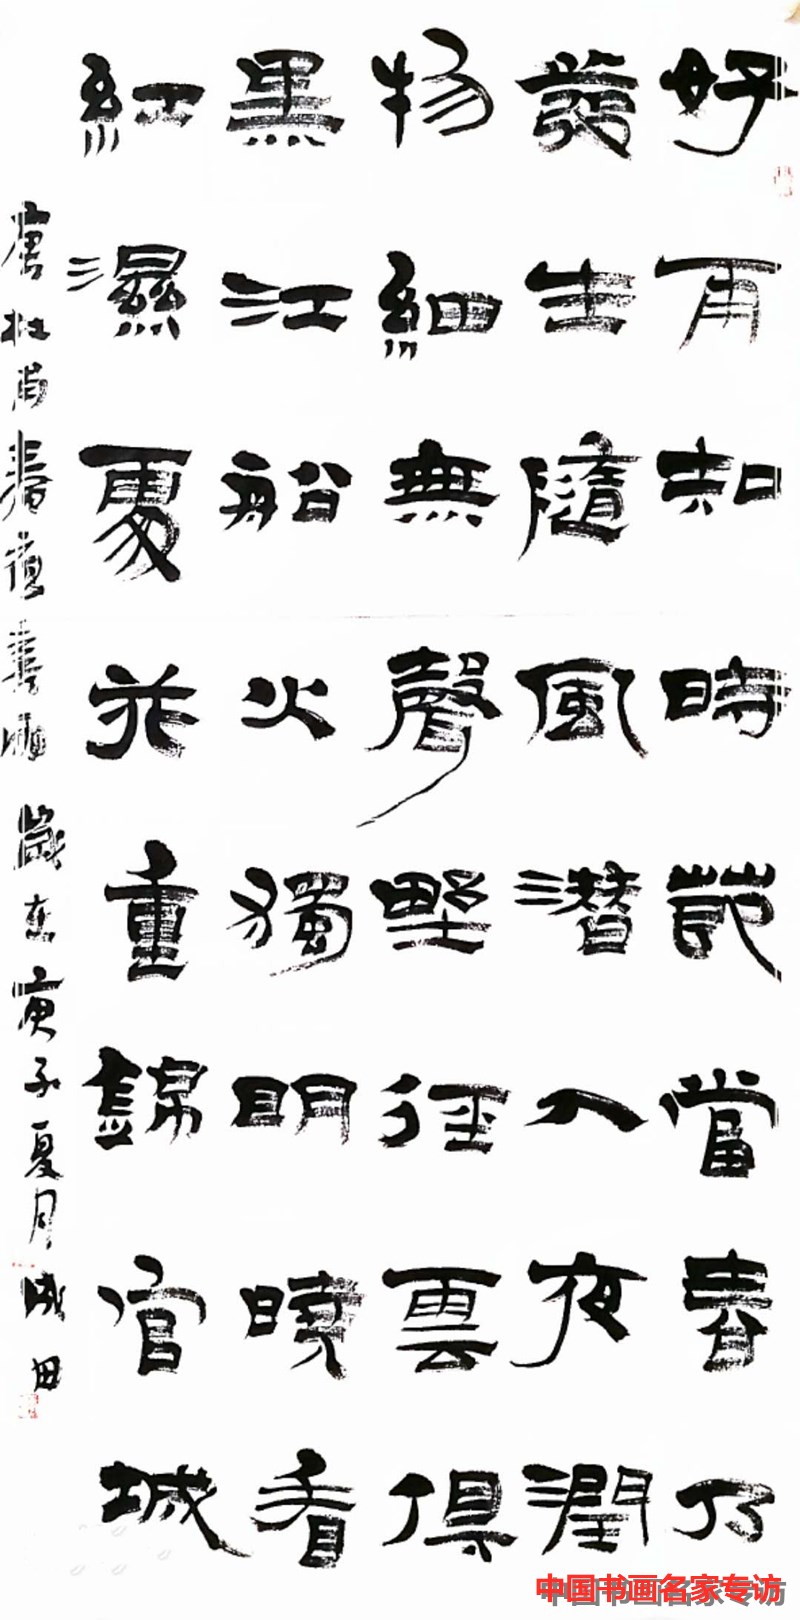 好雨知時節當春乃
發生隨風潜入夜潤
物細無聲野徑雲俱
黑江船火獨明曉看
紅濕處花重錦官城
唐杜甫春夜喜雨歲在庚子夏月成田
中国书画名家专访